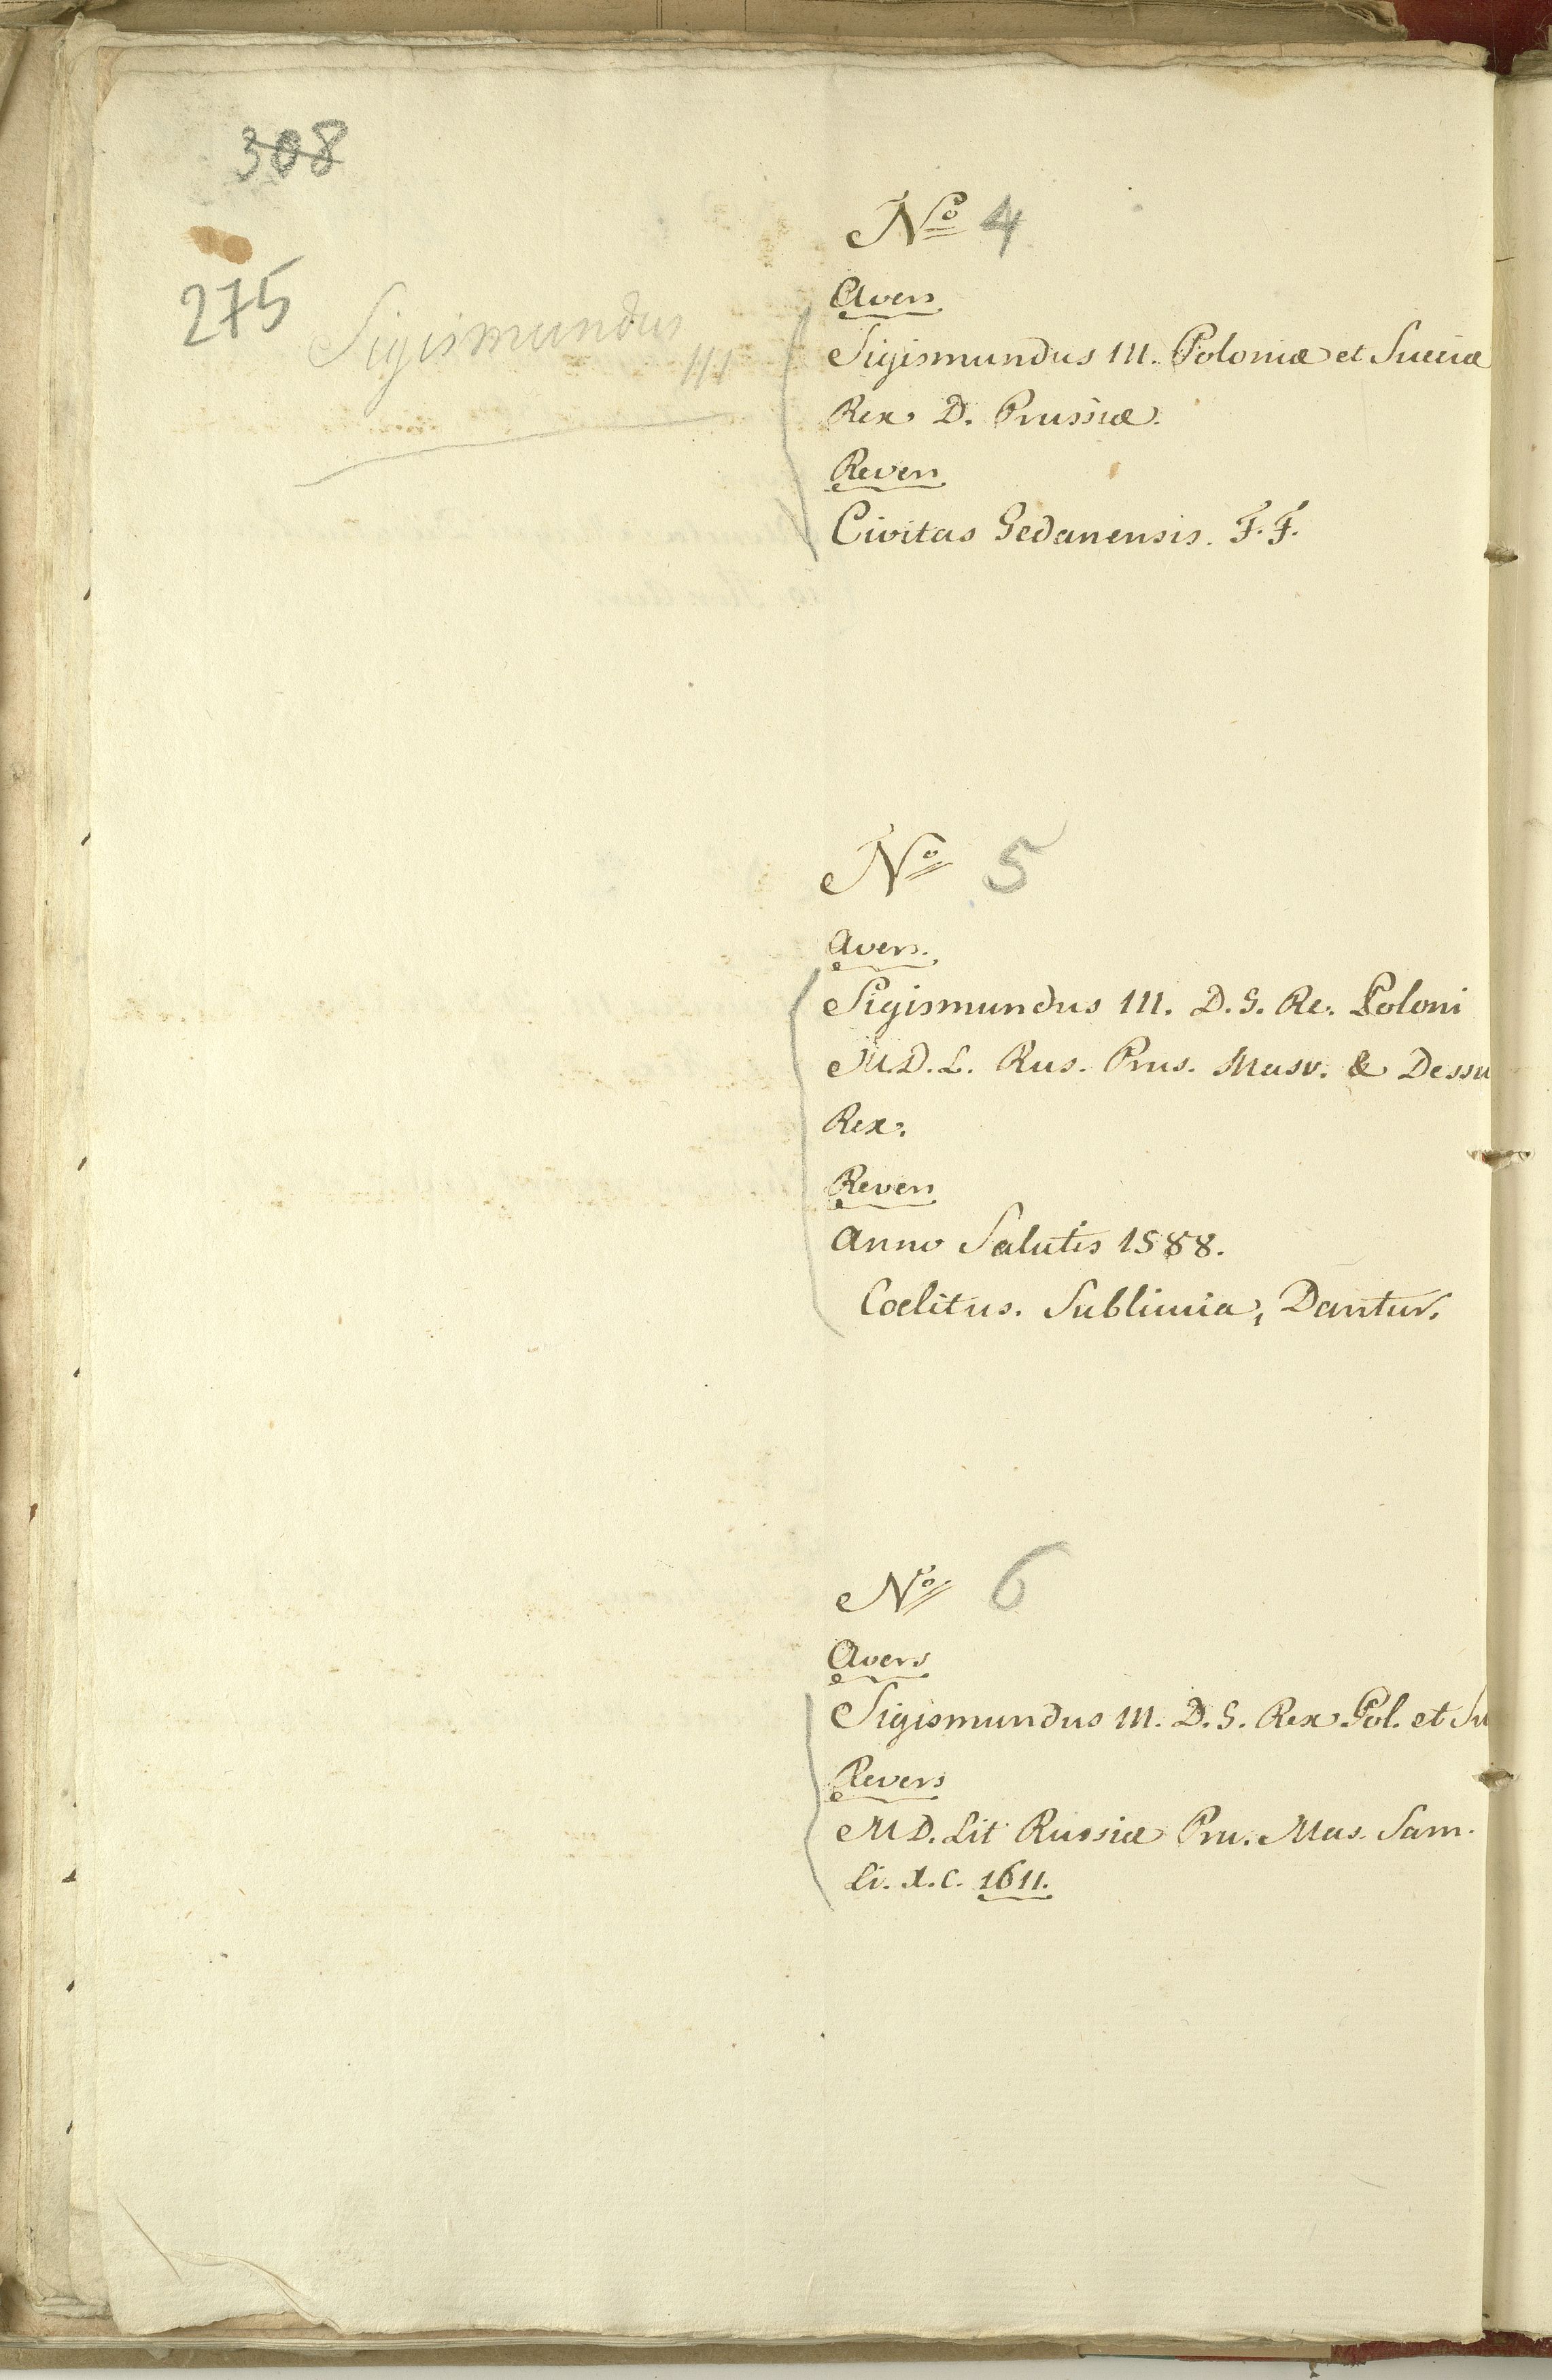 308
275
Sigismundus
III
No 4
Avers
Sigismundus III. Poloniæ et Sueciæ
Rex D. Prussiæ.
Revers
Civitas Gedanensis. F. F.
No 5
Avers.
Sigismundus III. D. G. Re. Poloni
M. D. L. Rus. Prus. Masv. &
Rex.
Revers
Anno Salutis 1588.
Coelitus. Sublimia, Dantur.
No 6
Avers
Sigismundus III. D. G. Rex Pol. et Su
Revers
M D. Lit Russiæ Pru. Mas. Sam.
Li. x. c. 1611.